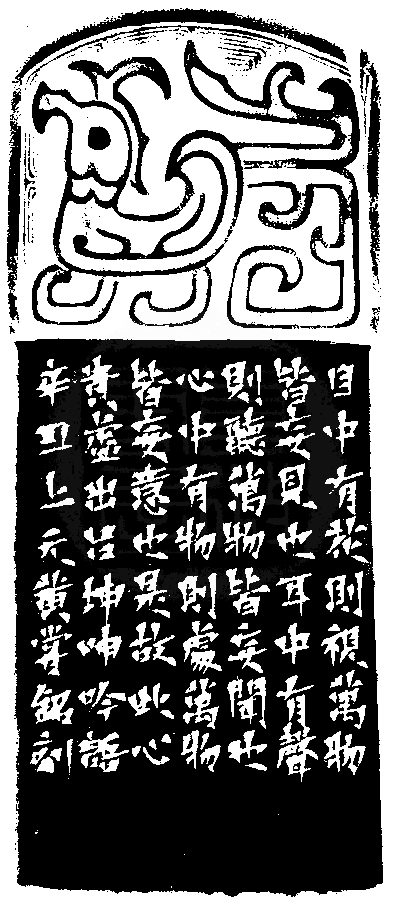 目中有花則視萬物
皆妄見也耳中有聲
則聽萬物皆妄聞也
心中有物則處萬物
皆妄意也是故此心
貴虛出呂坤呻吟語
辛丑上元黃掌銘刻